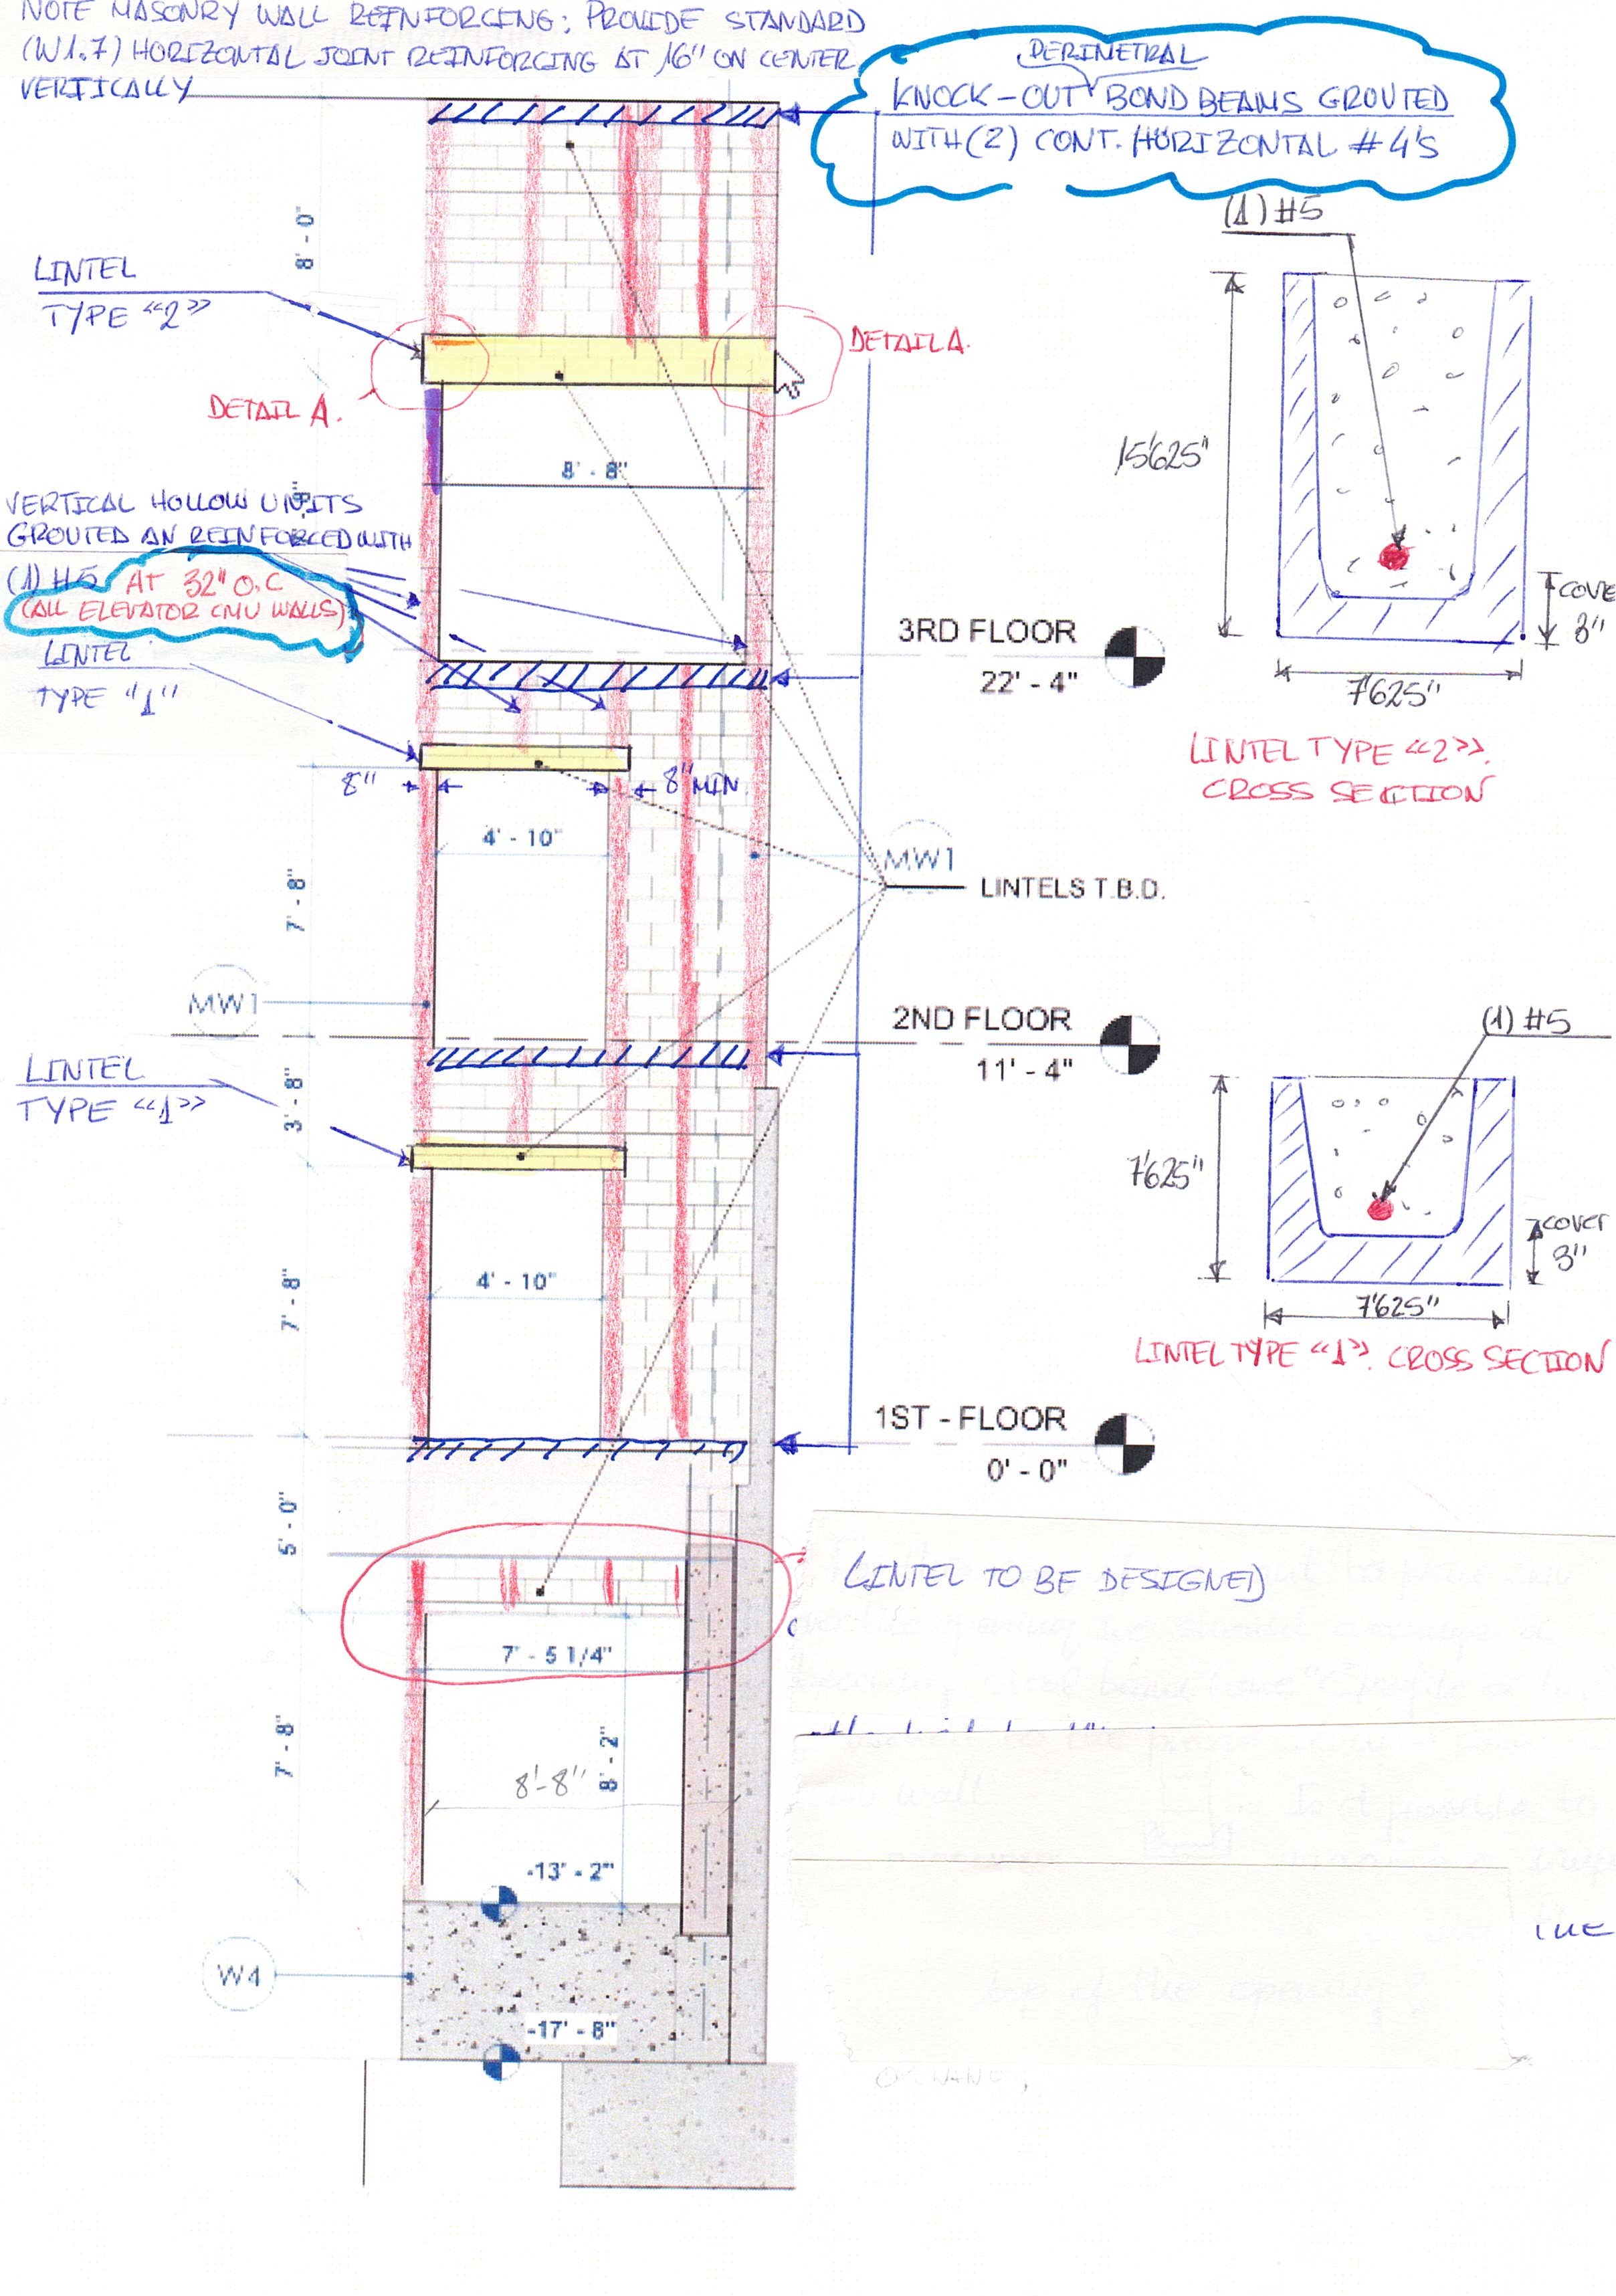 NOTE MASONRY WALL REINFORCING: PROVIDE STANDARD
(W1.7) HORIZONTAL JOINT REINFORCING AT 16" ON CENTER
VERTICALLY
PERIMETRAL
KNOCK-OUT BOND BEAMS GROUTED
WITH (2) CONT. HORIZONTAL #4'S
8' - 0"
(1) #5
LINTEL
TYPE "2"
DETAIL A.
DETAIL A.
15'625"
8' - 8"
VERTICAL HOLLOW UNITS
GROUTED AN REINFORCED WITH
(1) #5 AT 32" O.C
(ALL ELEVATOR CMU WALLS)
COVE
3"
7'625"
LINTEL TYPE «2».
CROSS SECTION
3RD FLOOR
22' - 4"
LINTEL
TYPE "1"
8"
8" MIN.
4' - 10"
7' - 8"
MW1
LINTELS T.B.D.
MW1
2ND FLOOR
11' - 4"
(1) #5
LINTEL
TYPE «1»
3' - 8"
7'625"
COVER
3"
7'625"
LINTEL TYPE «1». CROSS SECTION
4' - 10"
7' - 8"
1ST - FLOOR
0' - 0"
5' - 0"
LINTEL TO BE DESIGNED
7' - 5 1/4"
7' - 8"
8'-8"
8' - 2"
-13' - 2"
W4
-17' - 8"
top of the opening?